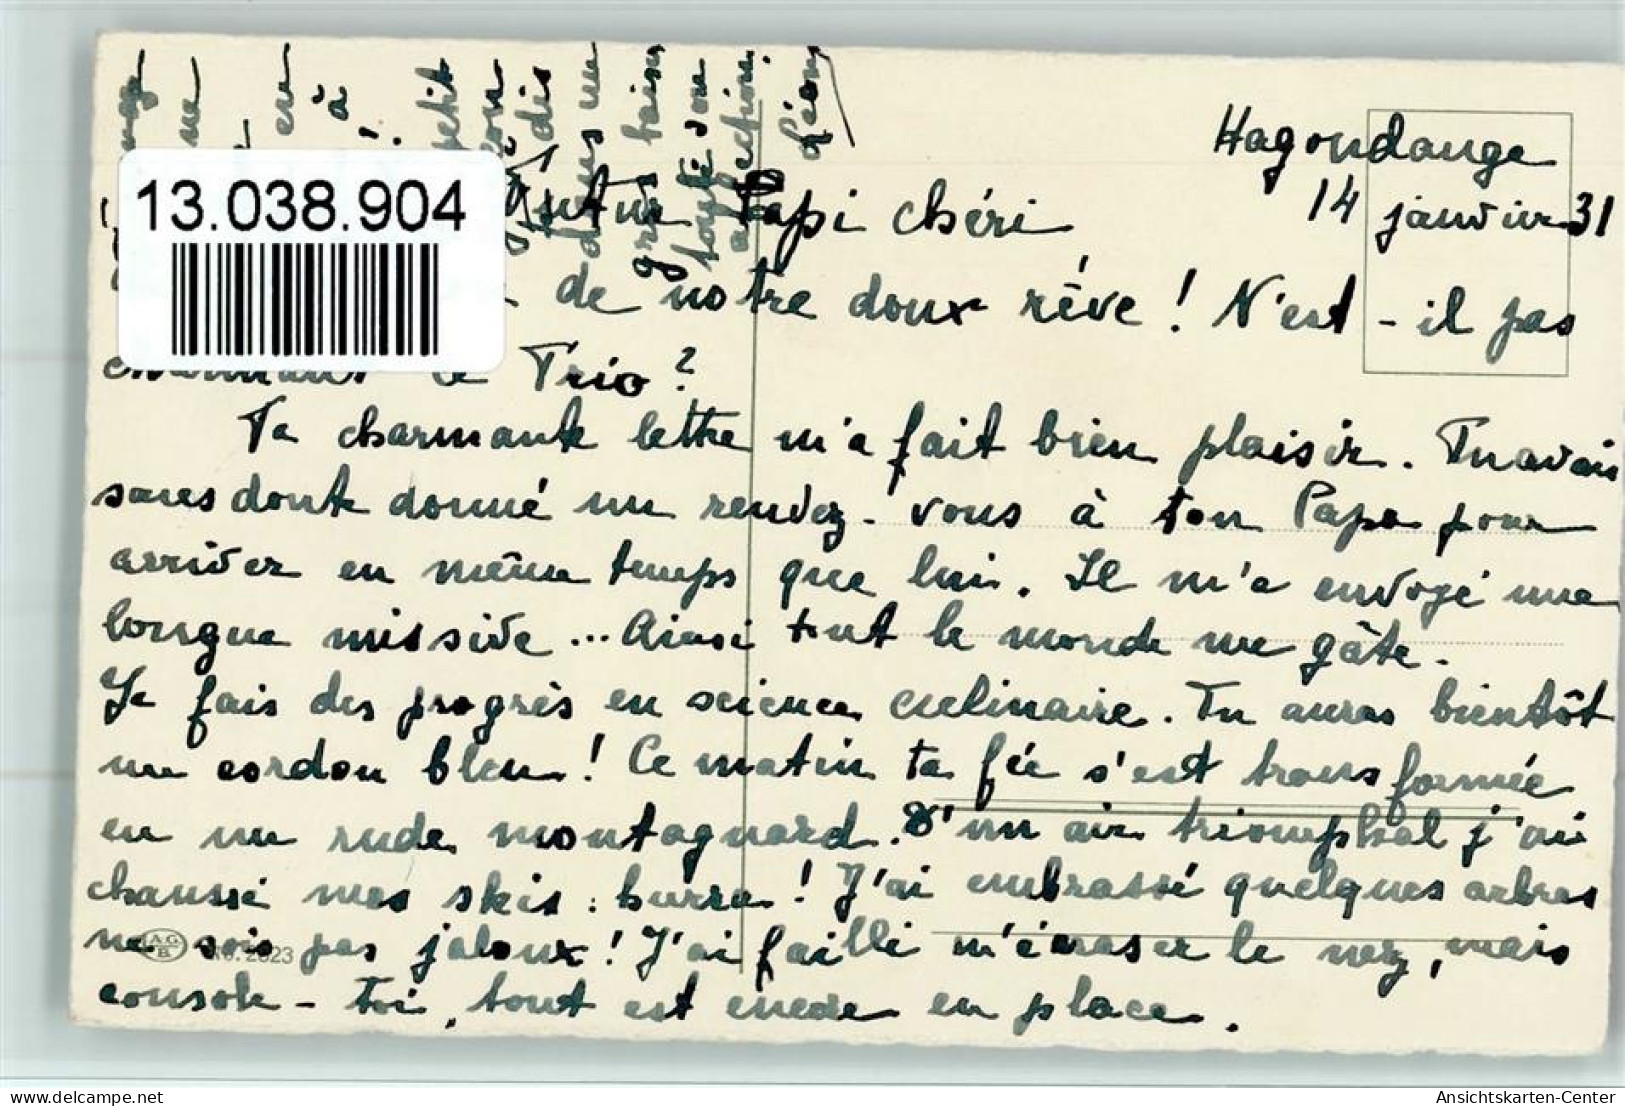 Hagondange
14 janvier 31
futur Papi chéri
de notre doux rêve ! N'est-il pas
charmant ce Trio ?
Ta charmante lettre m'a fait bien plaisir. Tu avais
sans doute donné un rendez-vous à ton Papa pour
arriver en même temps que lui. Il m'a envoyé une
longue missive ... Ainsi tout le monde me gâte.
Je fais des progrès en science culinaire. Tu auras bientôt
un cordon bleu ! Ce matin ta fée s'est transformée
en un rude montagnard. D'un air triomphal j'ai
chaussé mes skis : hurra ! J'ai embrassé quelques arbres
ne sois pas jaloux ! J'ai failli m'écraser le nez, mais
console-toi, tout est encore en place.
en
à
petit
dis
dans un
gros baiser
toute son
affection.
Léon
13.038.904
A.G.
B.
No. 2623
Ansichtskarten-Center